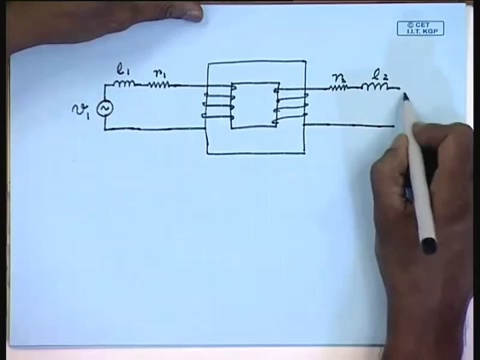 © CET
I.I.T. KGP
l₁ r₁
r₂ l₂
v₁